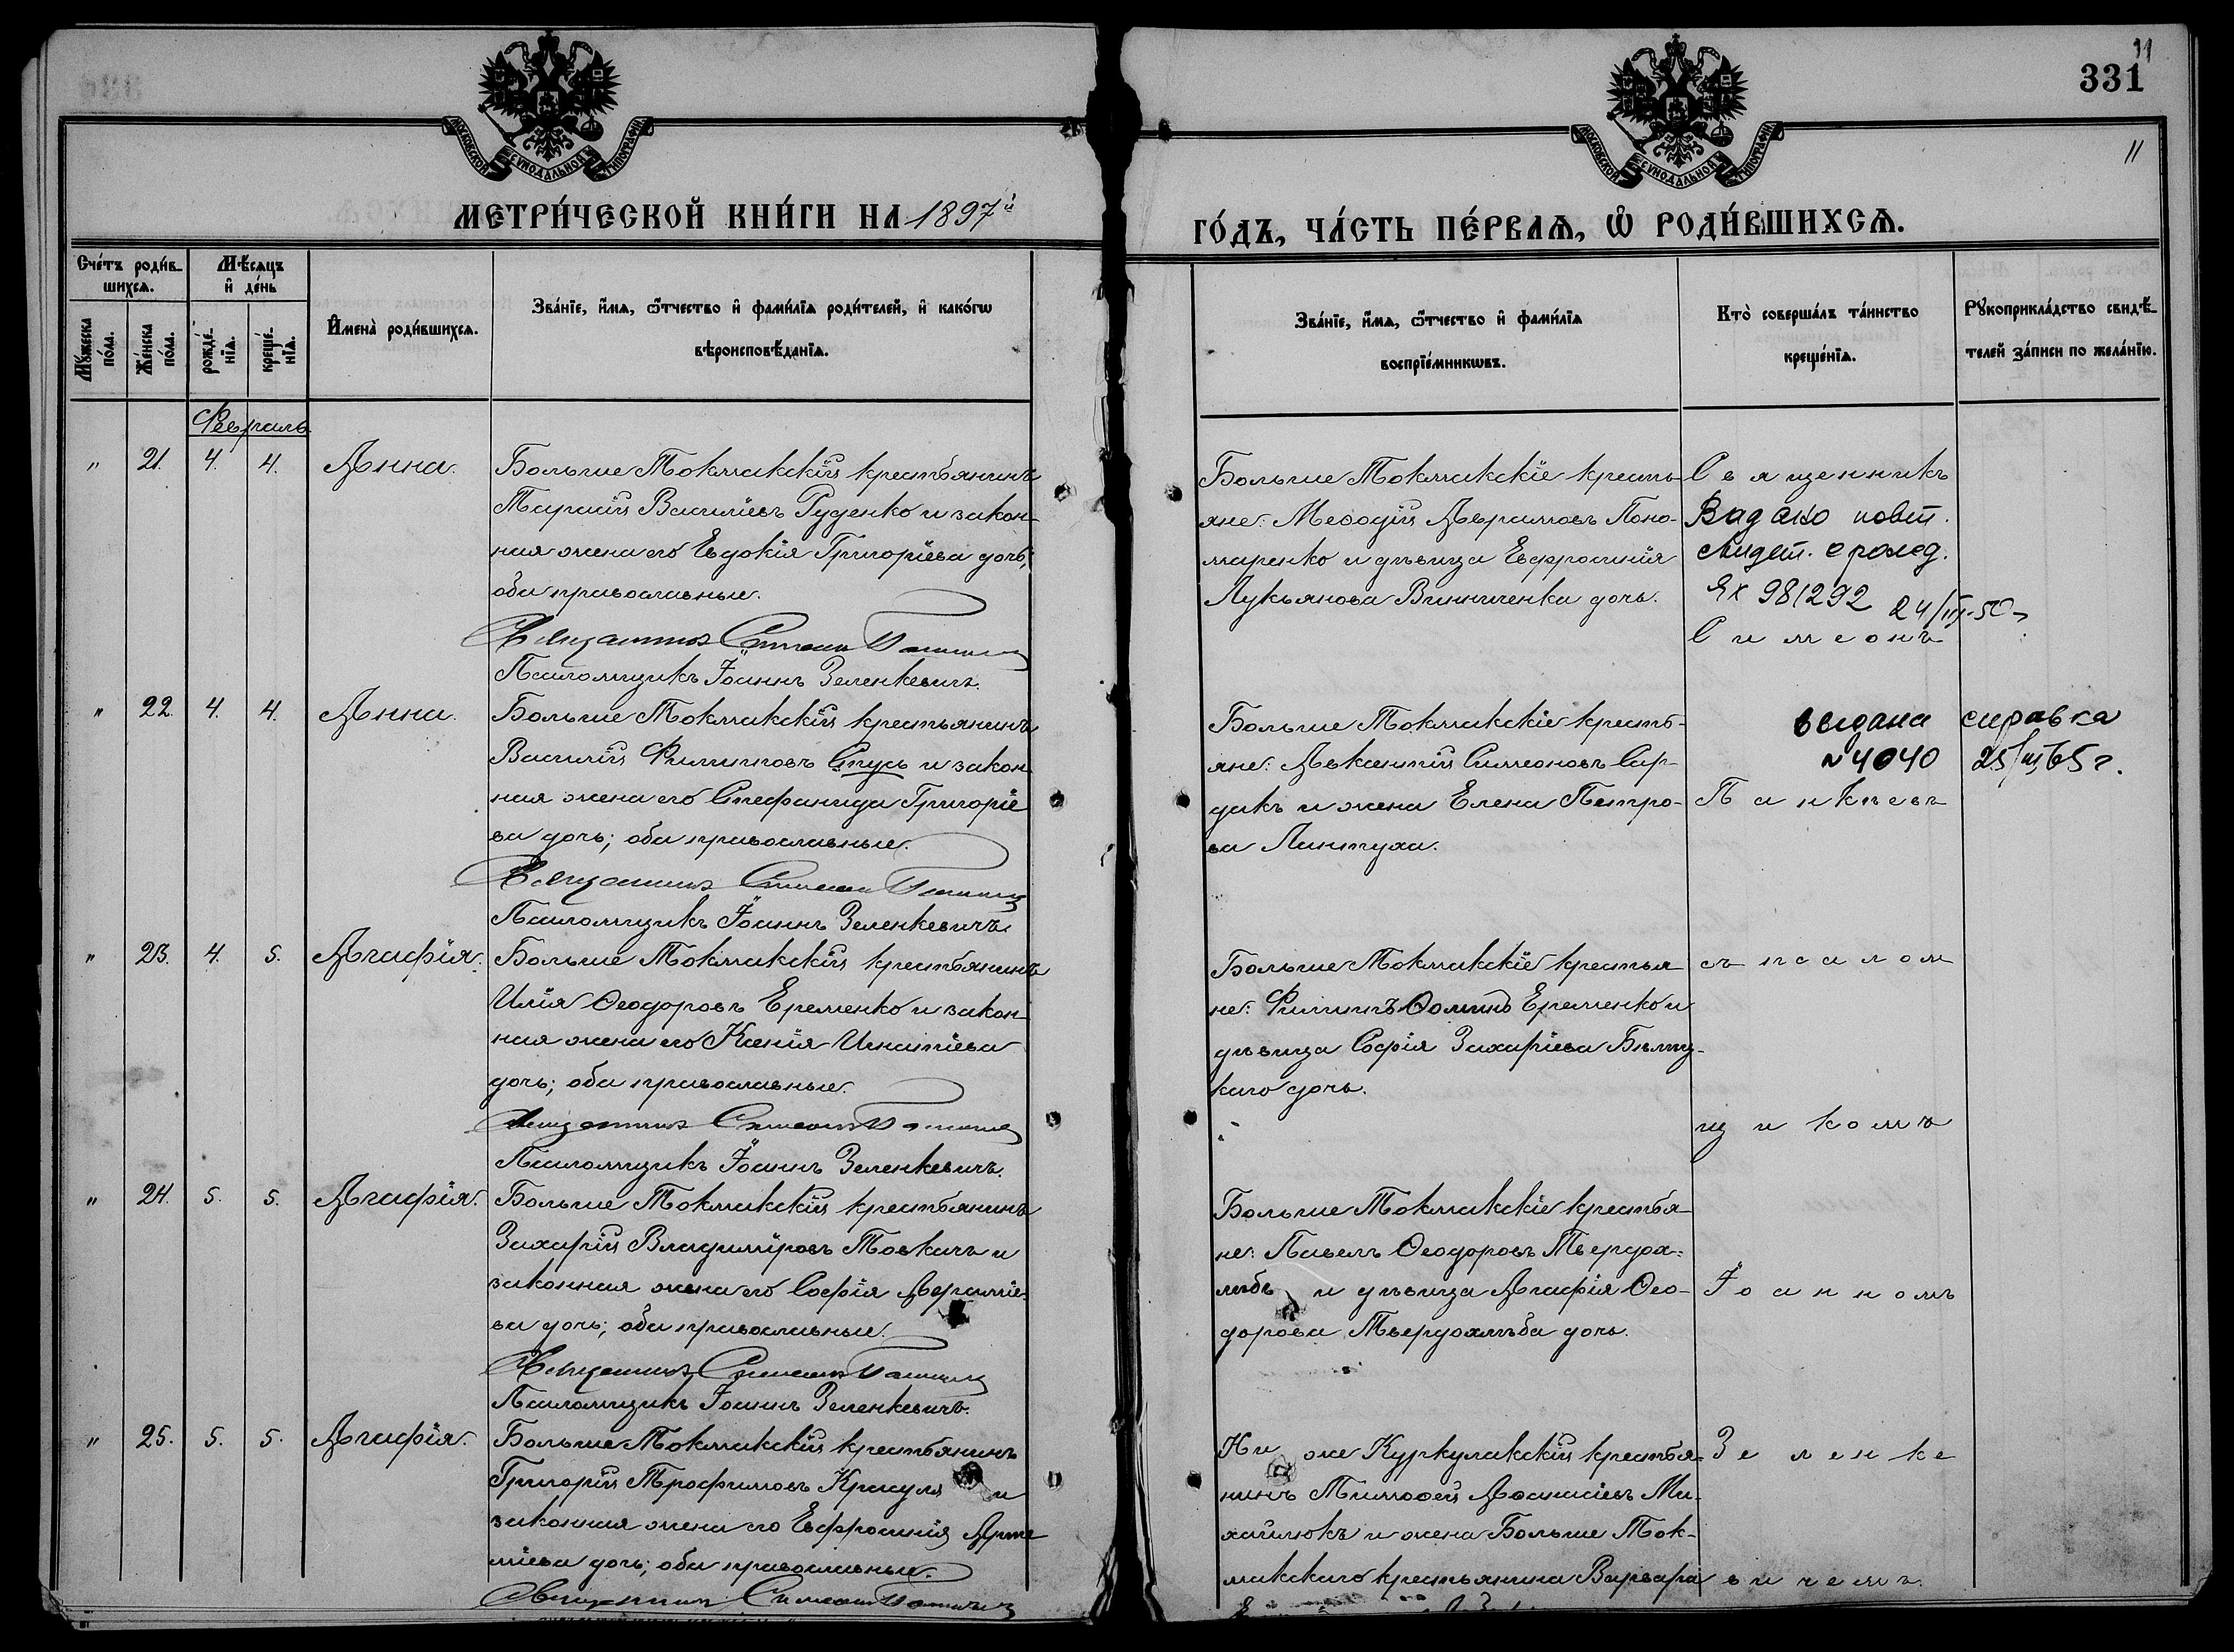 11
331
11
МОСКОВСКОЙ СѴНОДАЛЬНОЙ ТИПОГРАФІИ
МОСКОВСКОЙ СѴНОДАЛЬНОЙ ТИПОГРАФІИ
МЕТРИ́ЧЕСКОЙ КНИ́ГИ НА 1897й
ГО́ДЪ, ЧА́СТЬ ПЕ́РВАѦ, Ѽ РОДИ́ВШИХСѦ.
Сче́тъ роди́в-
шихсѧ.
Мꙋ́жеска по́ла.
Же́нска по́ла.
Мѣ́сѧцъ
и҆ де́нь
рожде́-нїѧ.
креще́-нїѧ.
И҆мена̀ роди́вшихсѧ.
Зва́нїе, и҆́мѧ, ѻ҆́тчество и҆ фами́лїѧ роди́телей, и҆ како́гѡ
вѣроисповѣ́данїѧ.
Зва́нїе, и҆́мѧ, ѻ҆́тчество и҆ фами́лїѧ
воспрїе́мникѡвъ.
Кто̀ соверша́лъ та́инство
креще́нїѧ.
Рꙋкоприкла́дство свидѣ́-
телей за́писи по жела́нїю.
Февраль
" 21. 4. 4. Анна.
Больше Токмакскій крестьянинъ
Тарасій Василіевъ Руденко и закон-
ная жена его Евдокія Григоріева дочь;
оба православные.
Священникъ Симеонъ
Псаломщикъ Іоаннъ Зеленкевичъ.
Больше Токмакскіе кресть-
яне: Меѳодій Аврамовъ Поно-
маренко и дѣвица Евфросинія
Лукьянова Винниченка дочь.
Священникъ
Видано повт.
свидет. о рожд.
ЯХ 981292 24/III-50
Симеонъ
" 22. 4. 4. Анна.
Больше Токмакскій крестьянинъ
Василій Филипповъ Стусь и закон
ная жена его Стефанида Григоріе
ва дочь; оба православные.
Священникъ Симеонъ
Псаломщикъ Іоаннъ Зеленкевичъ.
Больше Токмакскіе кресть-
яне: Авксентій Симеоновъ Сар-
дакъ и жена Елена Петро-
ва Линтуха.
выдана справка
№ 4040 25/III 65 г.
" 23. 4. 5. Агафія.
Больше Токмакскій крестьянинъ
Илія Ѳеодоровъ Еременко и закон
ная жена его Ксенія Игнатіева
дочь; оба православные.
Священникъ Симеонъ
Псаломщикъ Іоаннъ Зеленкевичъ.
Больше Токмакскіе крестья
не: Филиппъ Ѳоминъ Еременко и
дѣвица Софія Захаріева Бѣлиц-
каго дочь.
съ псалом
щикомъ
" 24. 5. 5. Агафія.
Больше Токмакскій крестьянинъ
Захарій Владиміровъ Товкачъ и
законная жена его Софія
ва дочь; оба православные.
Священникъ Симеонъ
Псаломщикъ Іоаннъ Зеленкевичъ.
Больше Токмакскіе крестья
не: Павелъ Ѳеодоровъ Твердох-
лѣбъ и дѣвица Агафія Ѳео-
дорова Твердохлѣба дочь.
Іоанномъ
" 25. 5. 5. Агафія.
Больше Токмакскій крестьянинъ
Григорій Трофимовъ Красуля и
законная жена его Евфросинія Арте
міева дочь; оба православные.
Священникъ Симеонъ
Ни же Куркулакскій крестья-
нинъ Тимоѳей Аѳанасіевъ Ми-
хайлюкъ и жена Больше Ток-
макскаго крестьянина Варвара
Зеленке
вичемъ.